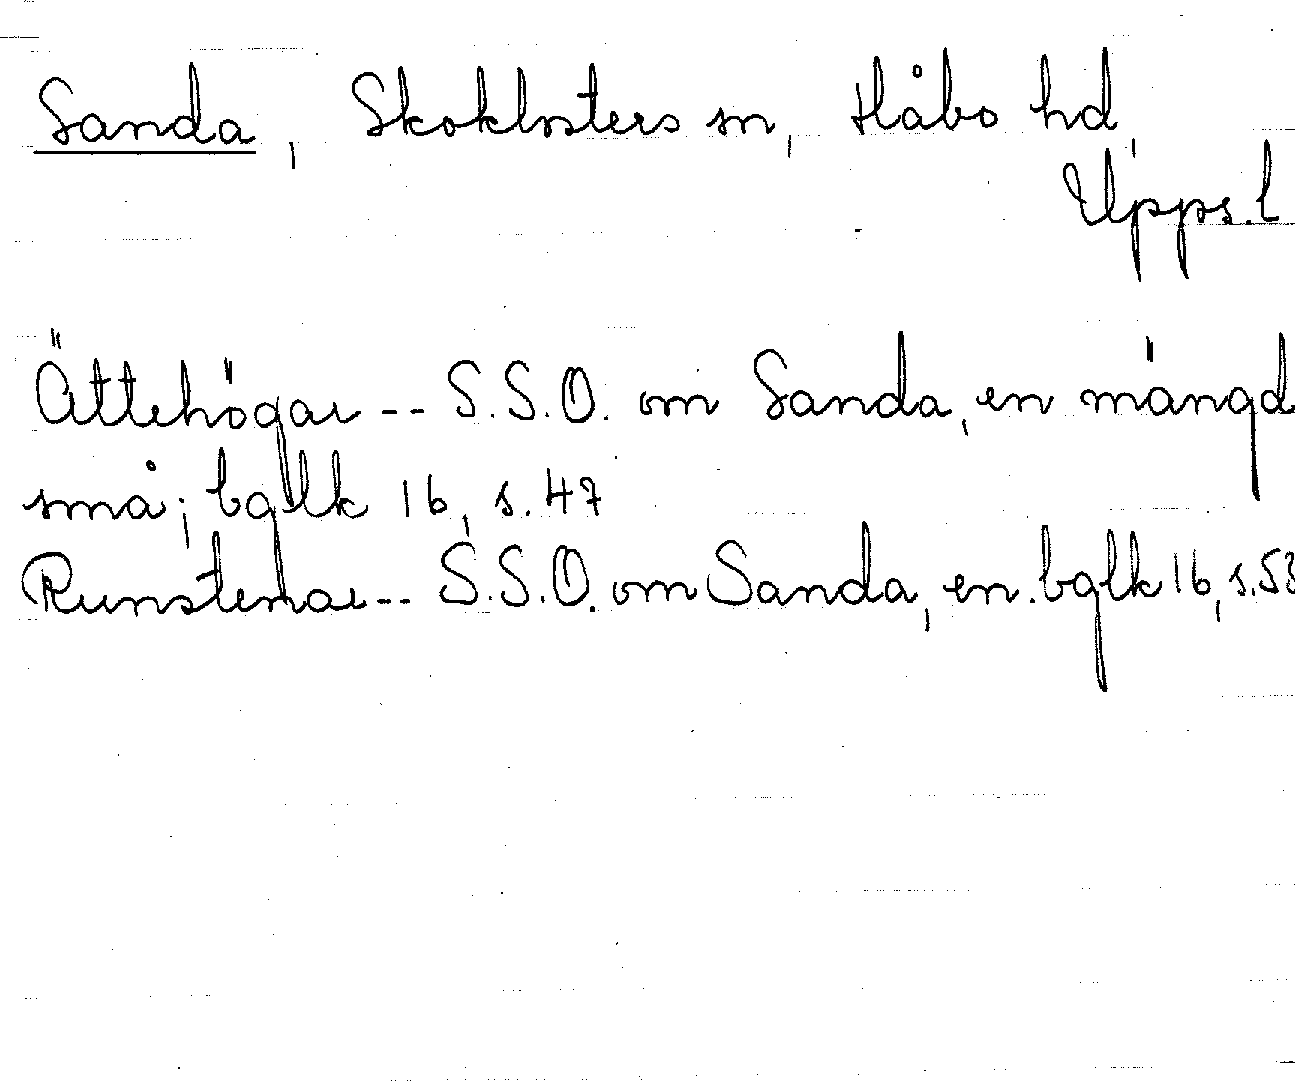 Sanda, Skoklosters sn, Håbo hd,
Upps. l
Ättehögar -- S.S.O. om Sanda, en mängd
små; bglk 16, s. 47
Runstenar -- S.S.O. om Sanda, en. bglk 16, s. 53